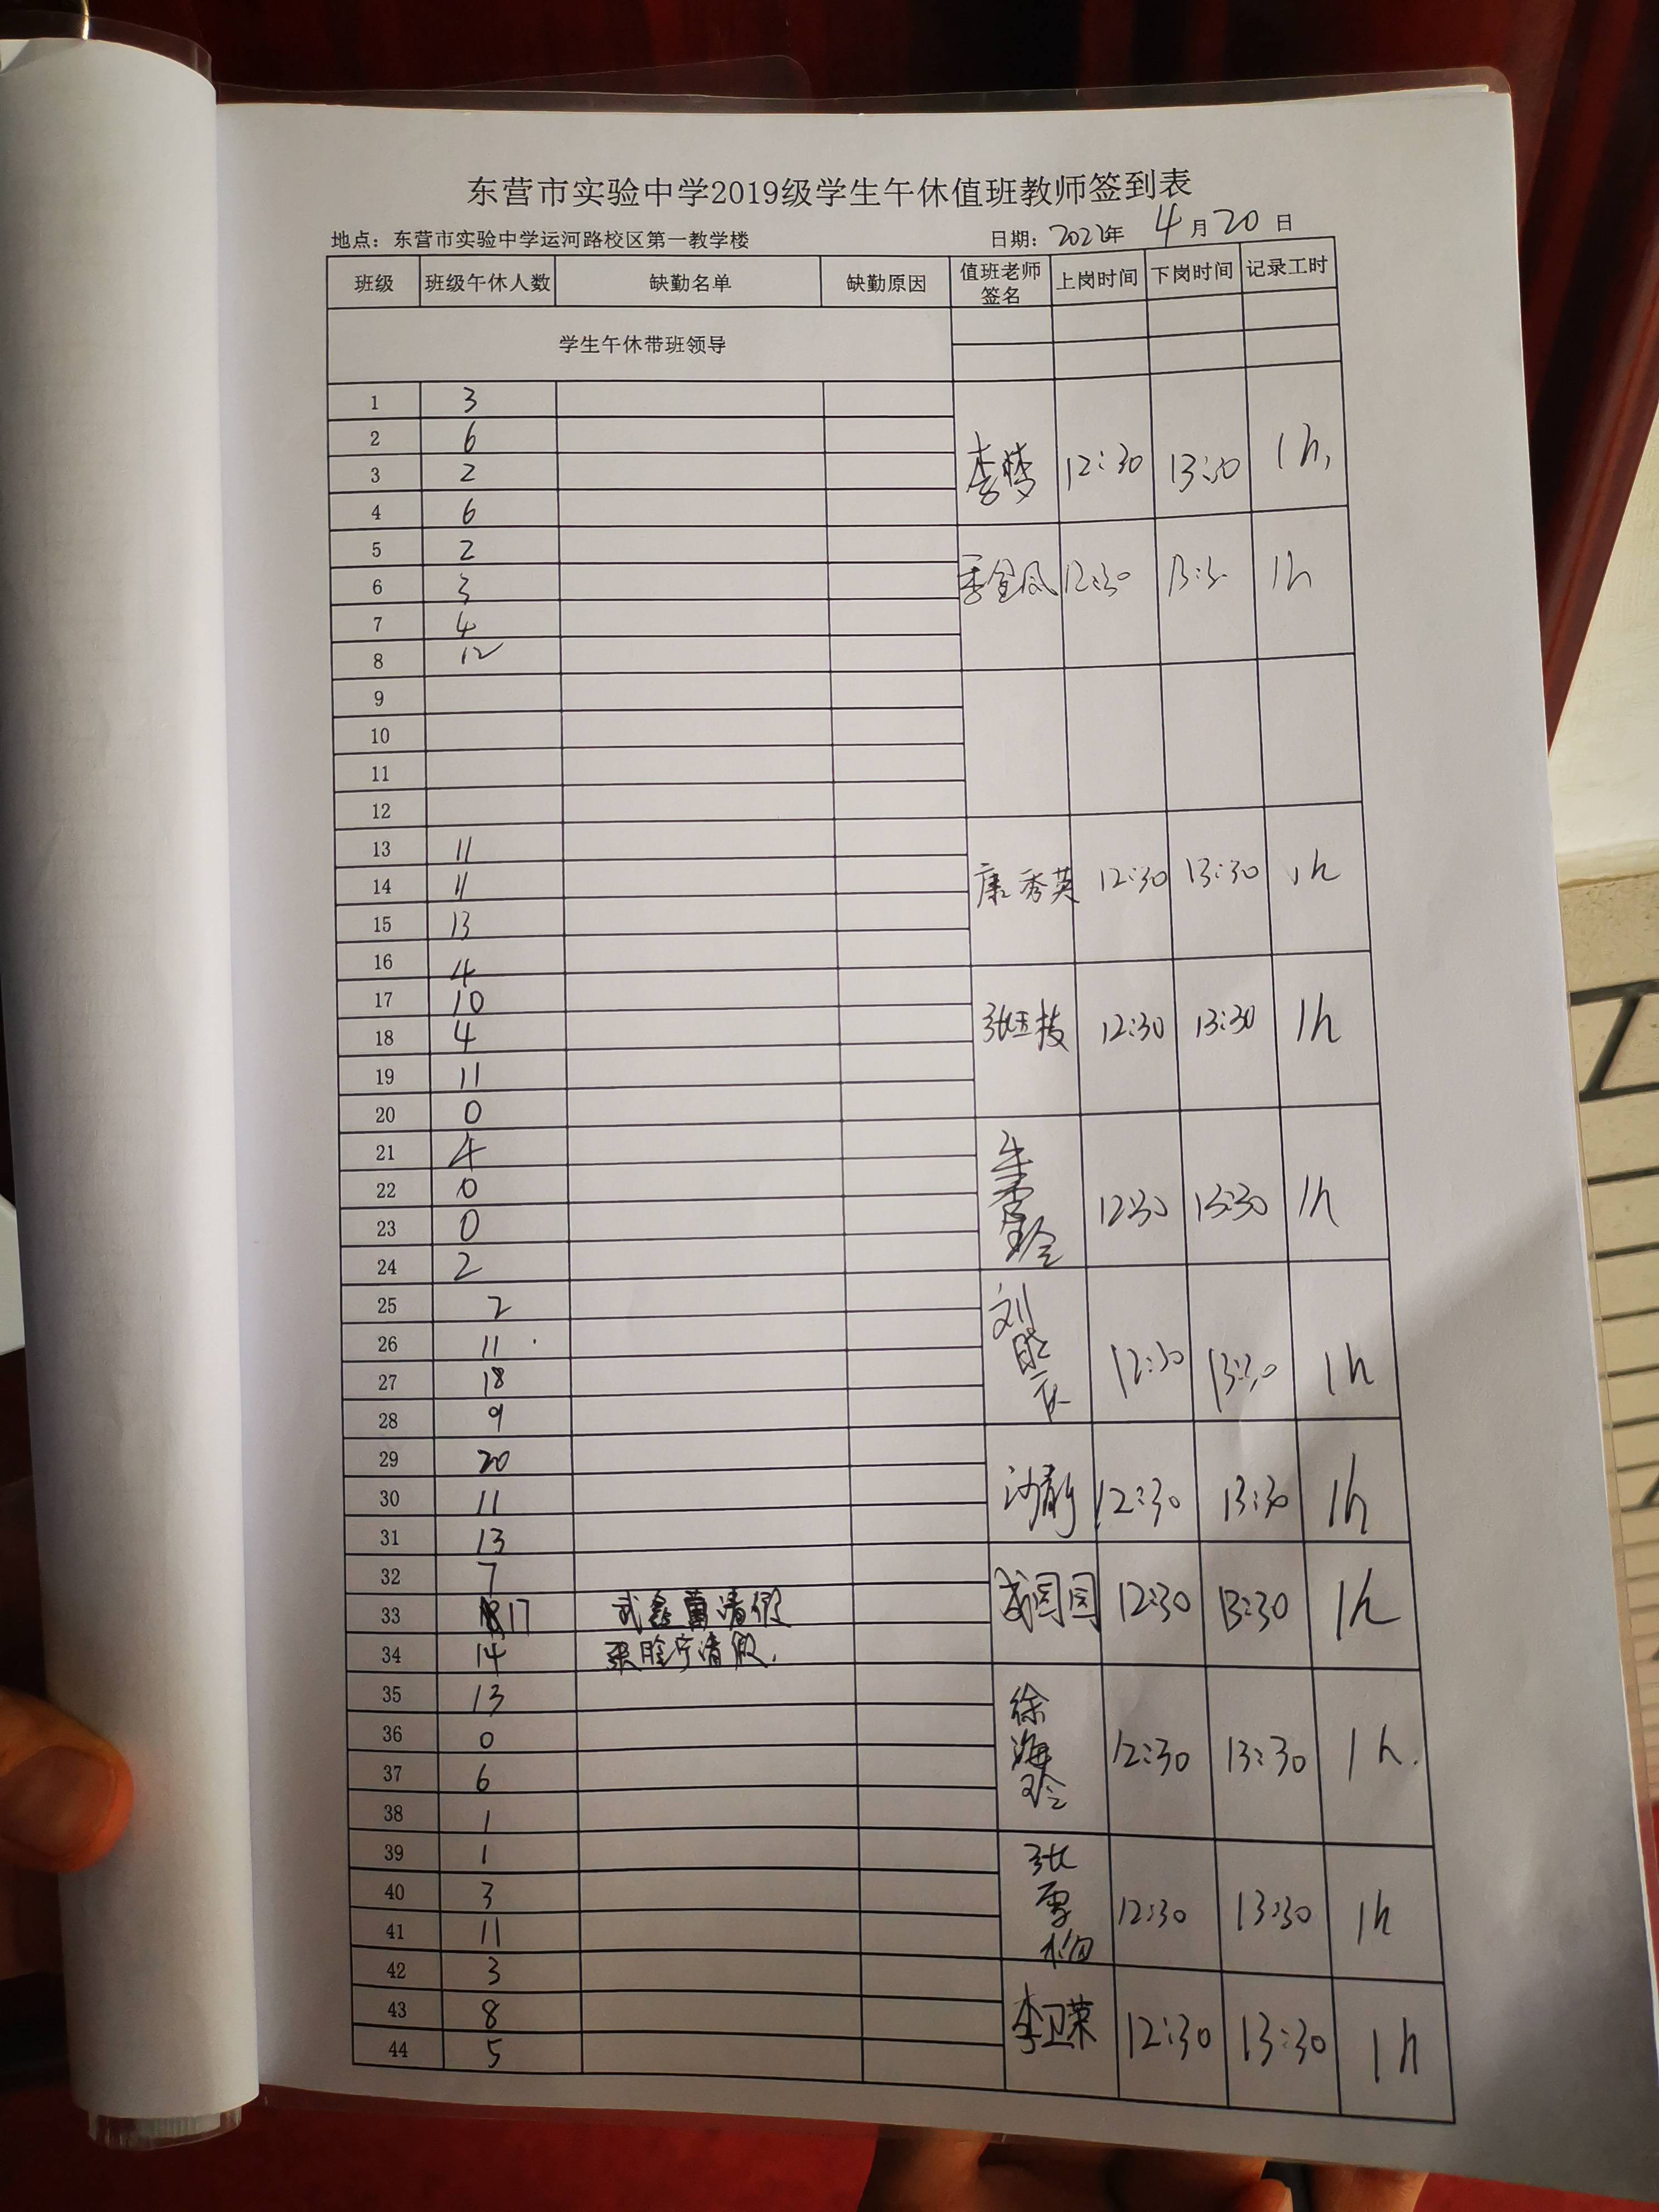 东营市实验中学2019级学生午休值班教师签到表
地点：东营市实验中学运河路校区第一教学楼 日期：2022年 4月20日
班级 班级午休人数 缺勤名单 缺勤原因 值班老师签名 上岗时间 下岗时间 记录工时
学生午休带班领导
1 3
2 6
3 2 李梦 12:30 13:30 1h,
4 6
5 2
6 3 季金凤 12:30 13:30 1h
7 4
8 12
9
10
11
12
13 11
14 11 康秀英 12:30 13:30 1h
15 13
16 4
17 10
18 4 张玉枝 12:30 13:30 1h
19 11
20 0
21 4
22 0 12:30 13:30 1h
23 0
24 2
25 2
26 11 刘 12:30 13:30 1h
27 18
28 9
29 20
30 11 沙静 12:30 13:30 1h
31 13
32 7
33 17 武鑫 请假 国国 12:30 13:30 1h
34 14 张 宁请假.
35 13
36 0 徐海玲 12:30 13:30 1h.
37 6
38 1
39 1
40 3 张雪柏 12:30 13:30 1h
41 11
42 3
43 8 李卫荣 12:30 13:30 1h
44 5